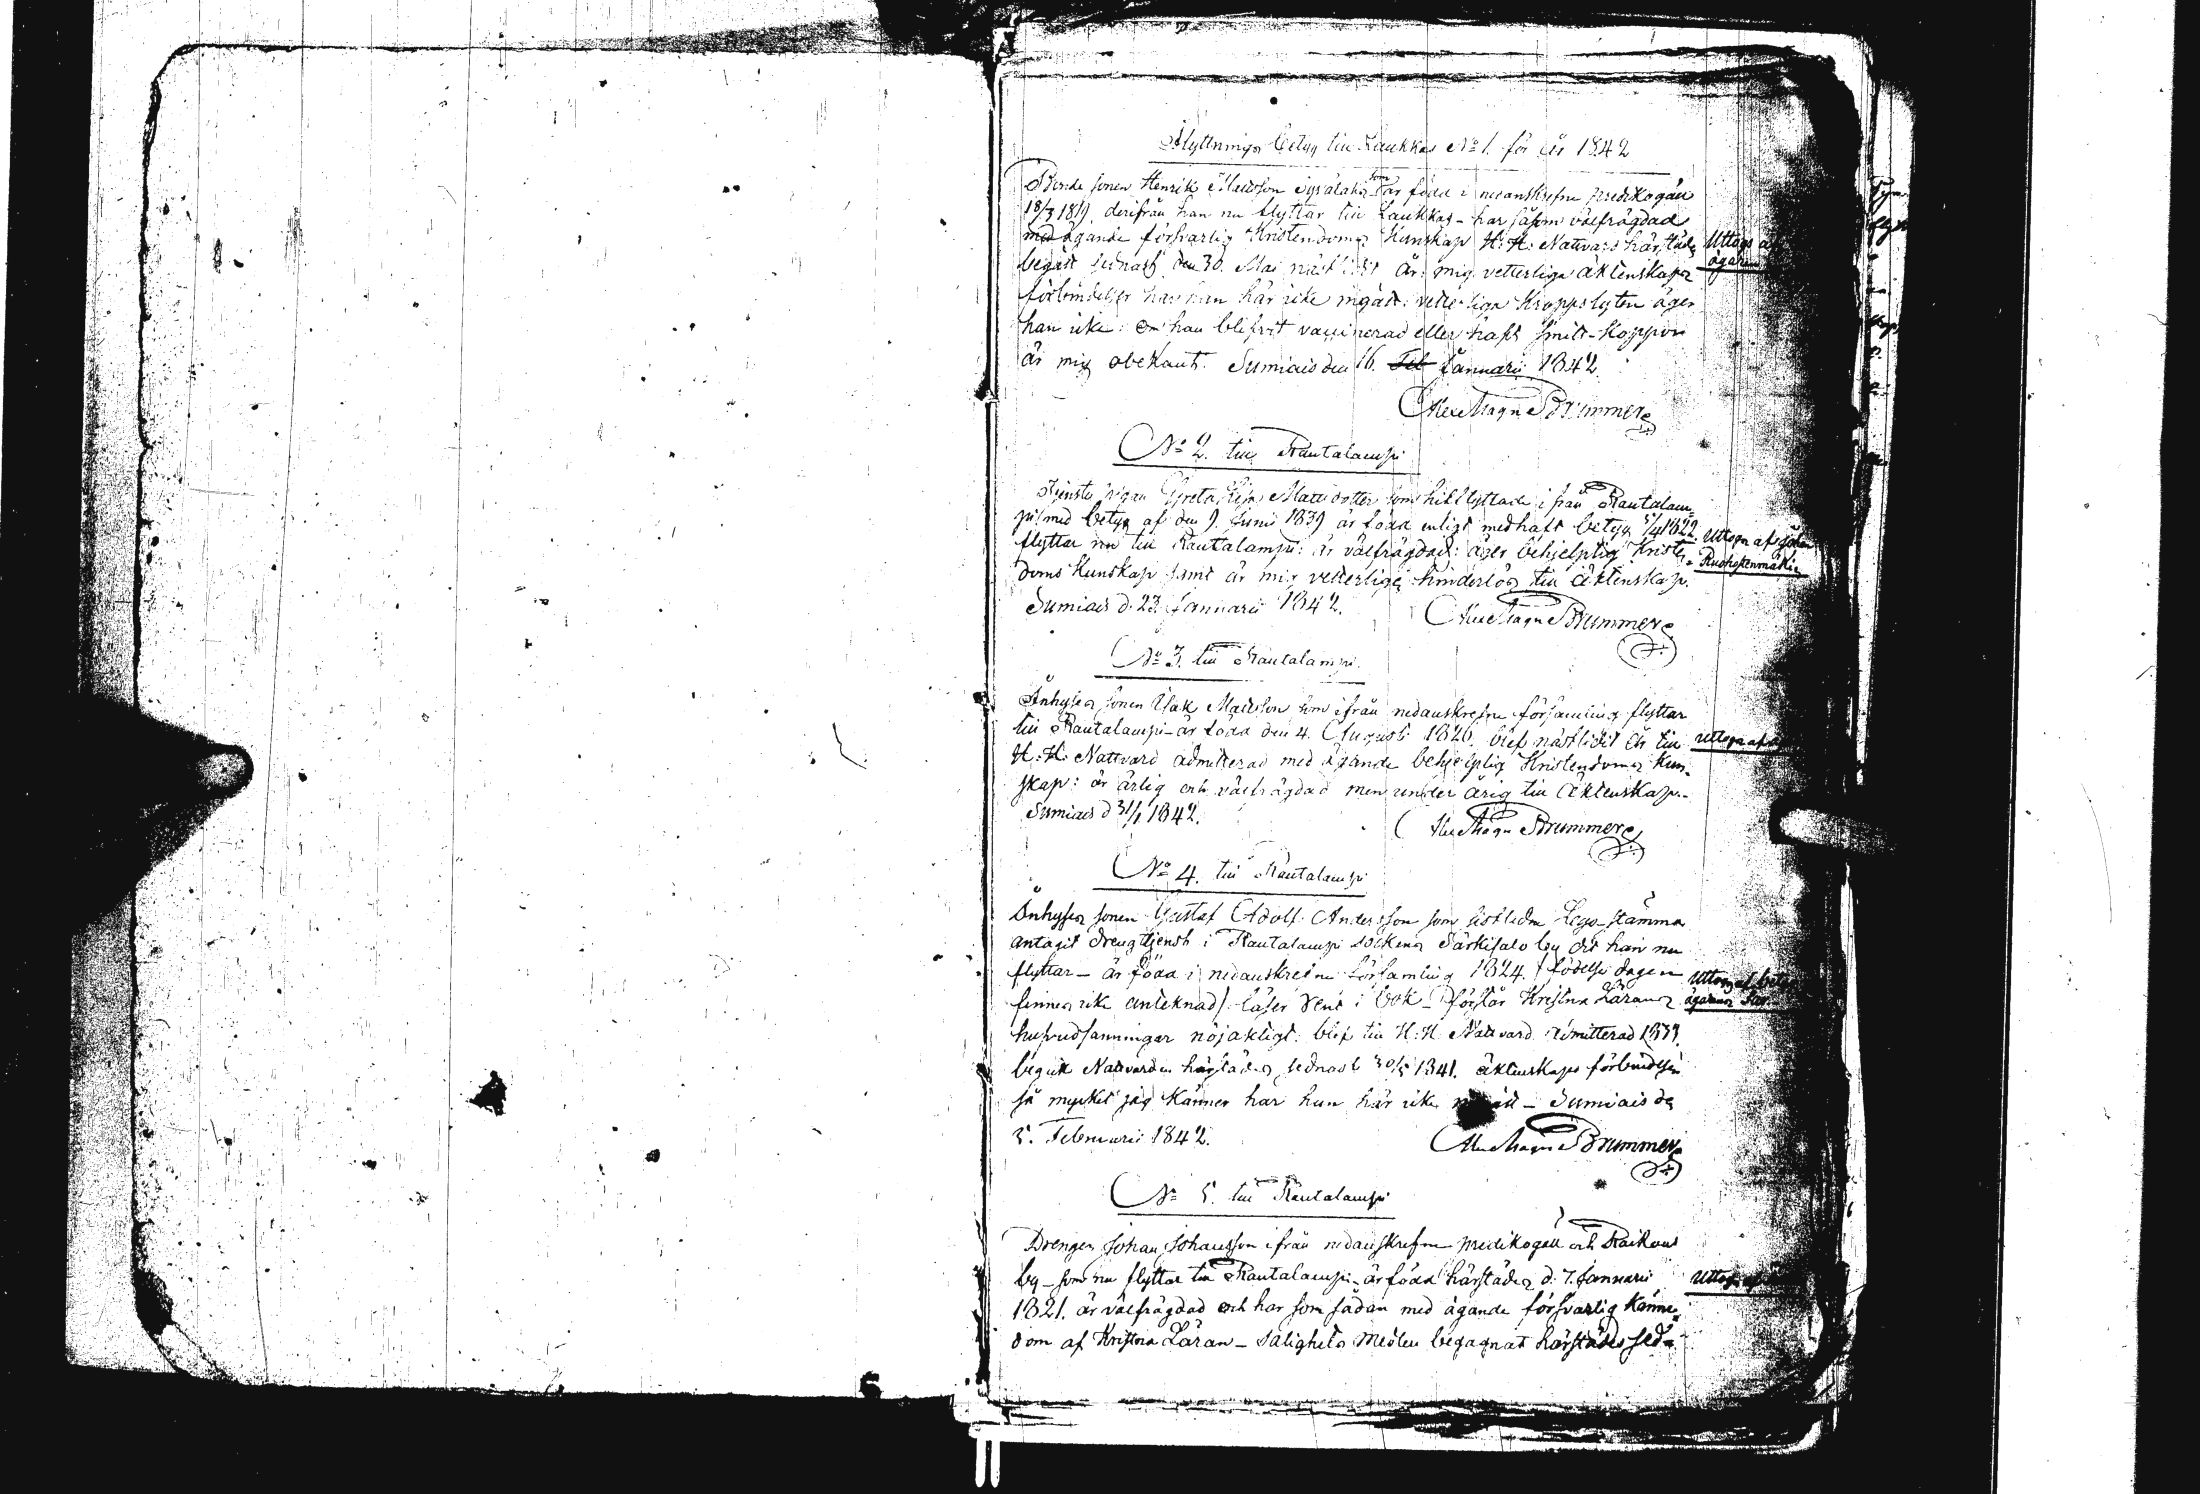 Flyttnings betyg till Laukkas No 1. för år 1842
Bonde sonen Henrik Mattsson som är född i nedanskrefne predikogäll
18/3 1819. derifrån han nu flyttar till Laukkas - har såsom välfrägdad
med ägande försvarlig Kristendoms Kunskap H: H: Nattvard härstädes
begått sednast den 30. Mai nästlidit år: mig vetterliga äktenskaps
förbindelser har han här icke ingått: vetterliga Kropps lyten äger
han icke: om han blifvit vaccinerad eller haft Smitt-Koppor
är mig obekant. Sumiais den 16. Feb Januarii 1842.
Alex Magn Brummer
No 2. till Rautalampi
Tjenste pigan Greta Lisa Mattsdotter som hitflyttade ifrån Rautalam=
pi med betyg af den 9. Junii 1839 är född enligt medhaft betyg 5/4 1822.
flyttar nu till Rautalampi: är välfrägdad: äger behjelplig Kristen=
doms Kunskap samt är mig vetterligen hinderlös till äktenskap.
Sumiais d. 23. Januarii 1842.
Alex Magn Brummer
No 3. till Rautalampi.
Inhyses sonen Isak Mattsson som ifrån nedanskrefne församling flyttar
till Rautalampi - är född den 4. Augusti 1826. blef nästlidit år till
H: H: Nattvard admitterad med ägande behjelplig Kristendoms Kun=
skap: är ärlig och välfrägdad men under årig till äktenskap.-
Sumiais d 31/1 1842.
Alex Magn Brummer
No 4. till Rautalampi
Inhyses sonen Gustaf Adolf Andersson som sistledne Lego-stämma
antagit drengtjenst i Rautalampi sockens Särkisalo by dit han nu
flyttar - är född i nedanskrefne församling 1824. / födelse dagen
finnes icke anteknad / läser rent i bok - förstår Kristna Lärans
hufvudsanningar nöjaktigt: blef till H: H Nattvard admitterad 1839.
begick Nattvarden härstädes sednast 30/5 1841. äktenskaps förbindelser
så mycket jag känner har han här icke ingått - Sumiais de
5. Februarii 1842.
Alex Magn Brummer
No 5. till Rautalampi
Drengen Johan Johansson ifrån nedanskrefne predikogäll och Raikous
by - som nu flyttar till Rautalampi - är född härstädes d. 7. Januarii
1821. är välfrägdad och har som sådan med ägande försvarlig Känne=
dom af Kristna Läran - salighets medlen begagnat härstädes sed=
Uttogs af
ägaren
Uttogs af
Uttogs af
Uttogs af betygs
ägarens
Uttogs af